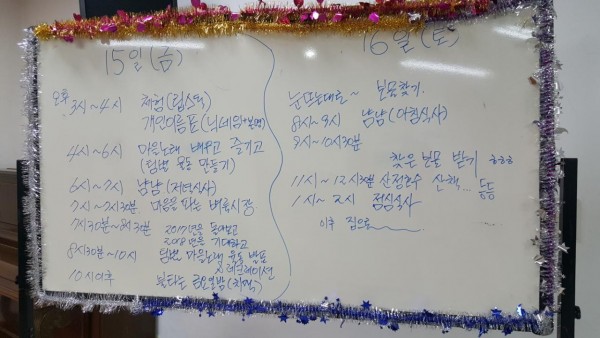 15일(금)
오후 3시~4시 체험(립스틱)
개인이름표(닉네임+본명)
4시~6시 마을노래 배우고 즐기고
(팀별 율동 만들기)
6시~7시 냠냠(저녁식사)
7시~7시30분 마음을 파는 벼룩시장
7시30분~8시30분 2017년을 돌아보고
2018년을 기대하고
8시30분~10시 팀별 마을노래 율동 발표
레크레이션
10시이후 불타는 금요일밤(치맥)
16일(토)
눈뜨는대로~ 보물찾기
8시~9시 냠냠(아침식사)
9시~10시30분
찾은 보물 받기 ㅎㅎㅎ
11시~12시30분 산정호수 산책... 등등
1시~2시 점심식사
이후 집으로